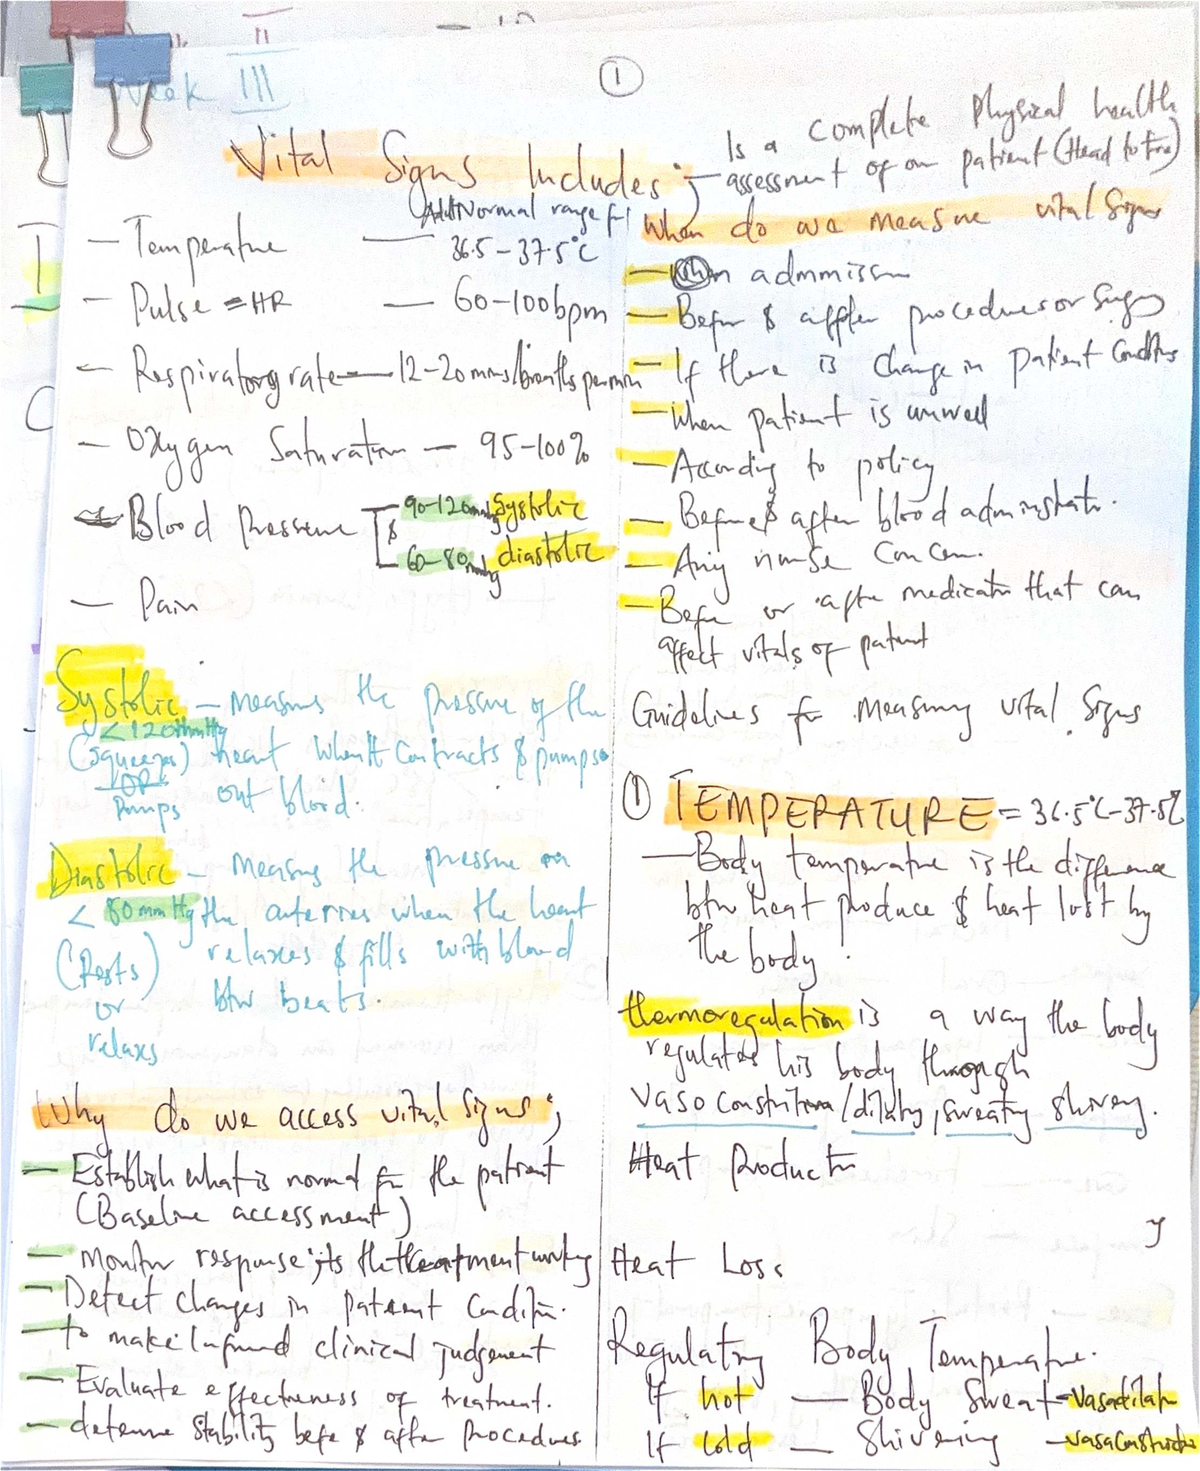 II
Week III
1
Vital Signs Includes; — Is a complete physical health
assessment of on patient (Head to Toe)
Adult Normal range for
— Temperature — 36.5 – 37.5°C
— Pulse = HR — 60-100bpm
— Respiratory rate — 12-20mms/breaths per min
— Oxygen Saturation — 95-100%
Blood pressure 90-120mmHg Systolic
&
60-80mmHg diastolic
— Pain
Systolic — Measures the pressure of the
<120mmHg
(Squeezes) heart when it contracts & pumps
OR
Pumps out blood.
Diastolic — Measures the pressure on
< 80mmHg the arteries when the heart
(Rests) relaxes & fills with blood
or btw beats.
relaxs
Why do we access vital signs;
— Establish what is normal for the patient
(Baseline accessment)
— Monitor response; its the treatment working
— Detect changes in patient condition.
— to make informed clinical judgement
— Evaluate effectiveness of treatment.
— determine stability before & after procedures
When do we measure vital signs
— On admmission
— Before & after procedures or surgery
— If there is change in patient conditions
— When patient is unwell
— According to policy
— Before & after blood administration.
— Any nurse concern.
— Before or after medication that can
affect vitals of patient
Guidelines for measuring vital signs
① TEMPERATURE = 36.5°C-37.5°C
— Body temperature is the difference
btw heat produce & heat lost by
the body.
thermoregulation is a way the body
regulates his body through
vasoconstrition/dilating, sweating shivery.
Heat Production
y
Heat Loss
Regulating Body Temperature.
If hot — Body Sweat – vasodilation
If cold — Shivering – vasaconstriction